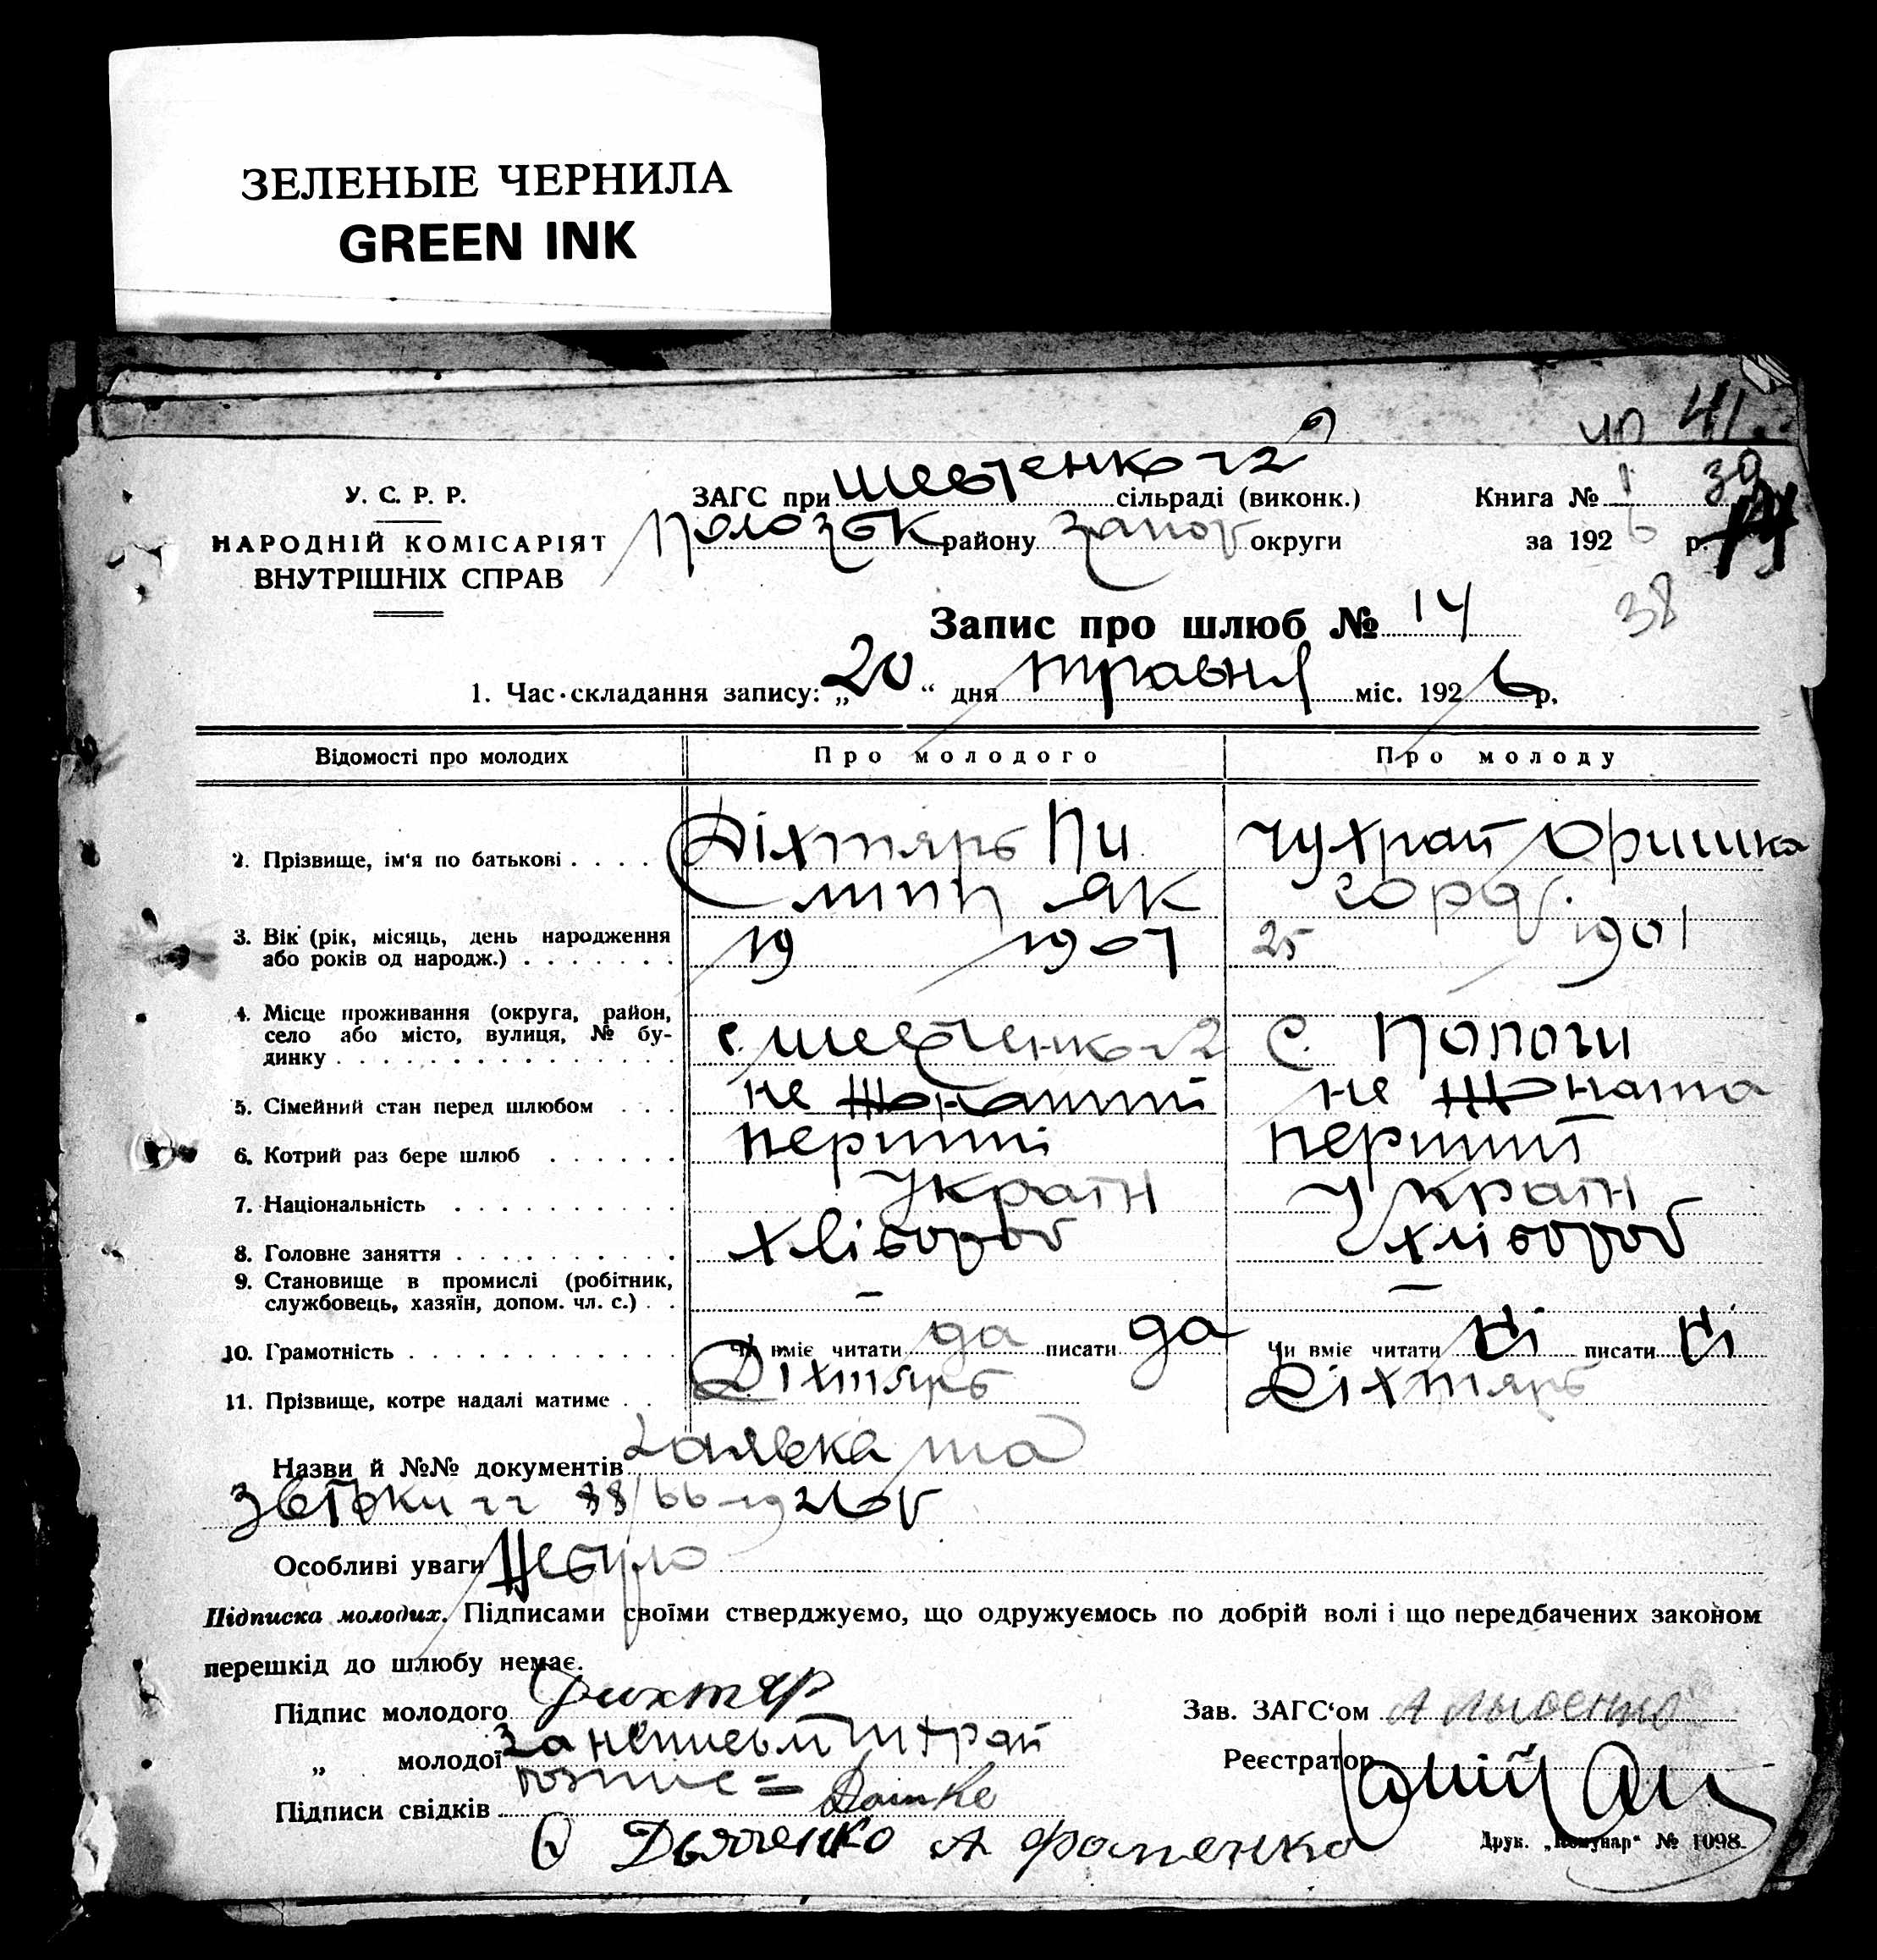 ЗЕЛЕНЫЕ ЧЕРНИЛА
GREEN INK
40 41
У. С. Р. Р.
НАРОДНІЙ КОМІСАРІЯТ
ВНУТРІШНІХ СПРАВ
ЗАГС при сільраді (виконк.)
району Запор округи
Книга № 1 39
за 1926 р.
38
Запис про шлюб № 14
1. Час складання запису: „20“ дня травня міс. 1926 р.
Відомості про молодих Про молодого Про молоду
2. Прізвище, ім'я по батькові . . . . Діхтярь Пи Чухрай Оришка
лип Як
3. Вік (рік, місяць, день народження 19 1907 25 1901
або років од народж.) . . . . . . .
4. Місце проживання (округа, район,
село або місто, вулиця, № бу- с. С. Пологи
динку . . . . . . . . . . . . . . .
5. Сімейний стан перед шлюбом . . . не жонатий не жоната
6. Котрий раз бере шлюб . . . . . . перший перший
7. Національність . . . . . . . . . . Україн Україн
8. Головне заняття . . . . . . . . . . хлібороб хлібороб
9. Становище в промислі (робітник, — —
службовець, хазяїн, допом. чл. с.) . .
10. Грамотність . . . . . . . . . . . . Чи вміє читати да писати да Чи вміє читати ні писати ні
11. Прізвище, котре надалі матиме . . Діхтярь Діхтярь
Назви й №№ документів Заявка та
Особливі уваги Небуло
Підписка молодих. Підписами своїми стверджуємо, що одружуємось по добрій волі і що передбачених законом
перешкід до шлюбу немає.
Підпис молодого Дихтяр Зав. ЗАГС'ом
„ молодої за неписьм Реєстратор
Підписи свідків
Дьяченко А Фоменко
Друк. „Комунар“ № 1098.